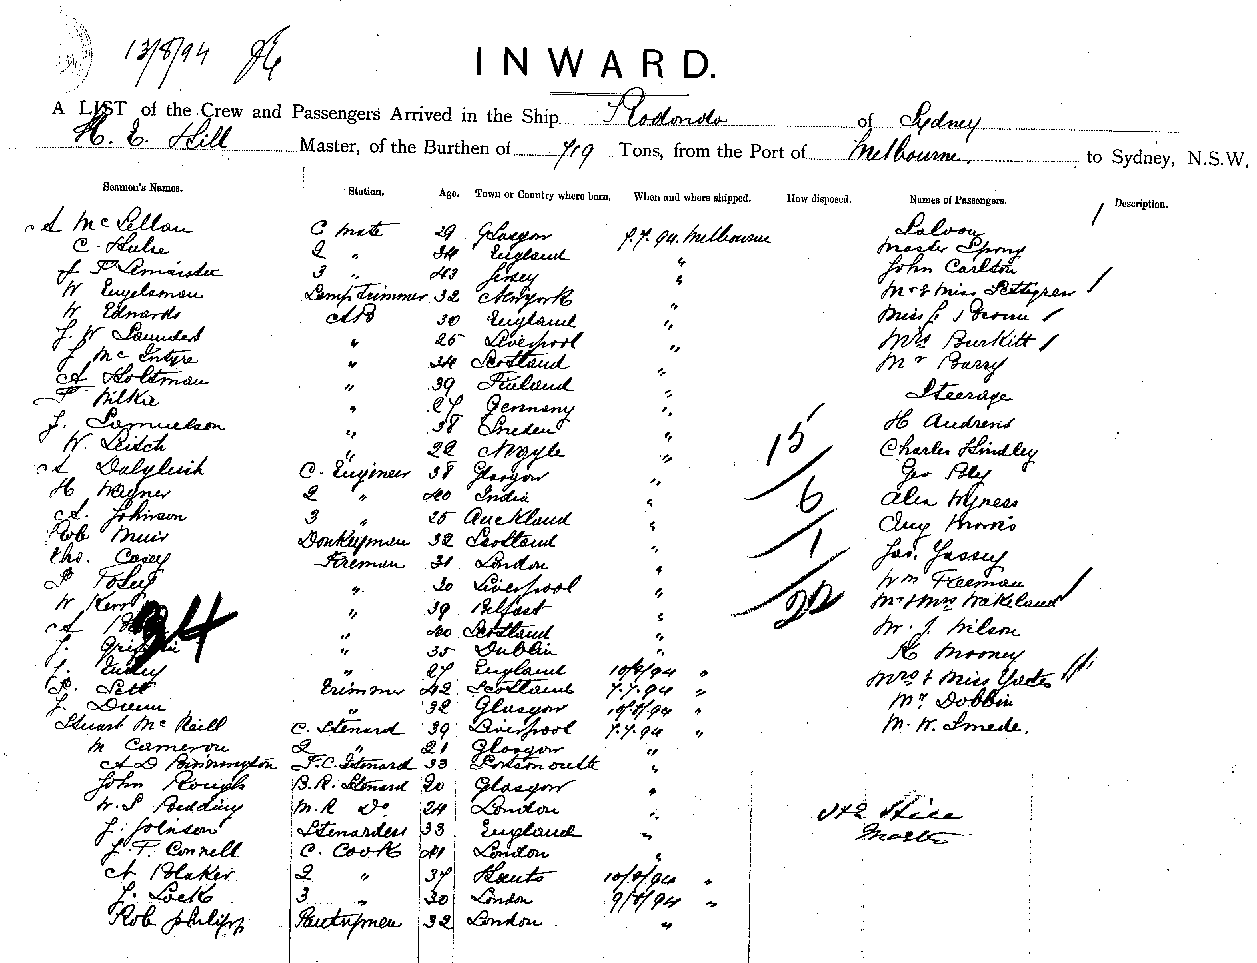 13/8/94
INWARD.
A LIST of the Crew and Passengers Arrived in the Ship Rodondo of Sydney
H. E. Hill Master, of the Burthen of 719 Tons, from the Port of Melbourne to Sydney, N.S.W.
Seamen's Names. Station. Age. Town or Country where born. When and where shipped. How disposed. Names of Passengers. Description.
A McLellan C mate 29 Glasgow 7.7.94. Melbourne Saloon
C. Hulse 2 " 34 England " Master Spong
J P Lemaistre 3 " 43 Jersey " John Carlson
W Engelsman Lamp Trimmer 32 New York " Mr & Miss Pettigrew
W Edwards AB 30 England " Miss Brown
J. W Saunders " 25 Liverpool " Mrs Burkitt
J McIntyre " 34 Scotland " Mr Barry
A Holtman " 39 Finland " Steerage
F Wilkie " 27 Germany " H Andrews
J. Samuelson " 38 Sweden " Charles Hindley
W. Leitch " 22 Argyle " 15 Geo
A Dalgleish C. Engineer 38 Glasgow " Alex Wyness
H Wagner 2 " 40 India " 6
A. Johnson 3 " 25 Auckland " Jas.
Rob Muir Donkeyman 32 Scotland " 1 Wm Freeman
Thos. Casey Fireman 31 London " Mr & Mrs Wakeland
P Foley " 30 Liverpool " 22 W. J. Wilson
W Kerr " 39 Belfast " K Mooney
A " 40 Scotland " Mrs & Miss Yates
J. Griffin " 35 Dublin " Mr Dobbin
34
J. " 27 England 10/8/94 " M. W. Smede.
P. Sett Trimmer 42 Scotland 7.7.94 "
J. " 32 Glasgow 10/8/94 "
Stuart McNeill C. Steward 39 Liverpool 7.7.94 "
M Cameron 2 " 21 Glasgow "
A D Binnington F.C. Steward 33 Portsmouth "
John Rough B.R. Steward 20 Glasgow "
W. S Bedding M.R Do 24 London "
J. Johnson Stewardess 33 England "
J. F. Connell C. Cook 41 London "
A Blaker 2 " 37 Hants 10/8/94 "
J. Lock 3 " 30 London 9/8/94 "
Rob Philipp Pantryman 32 London "
H E Hill
Master